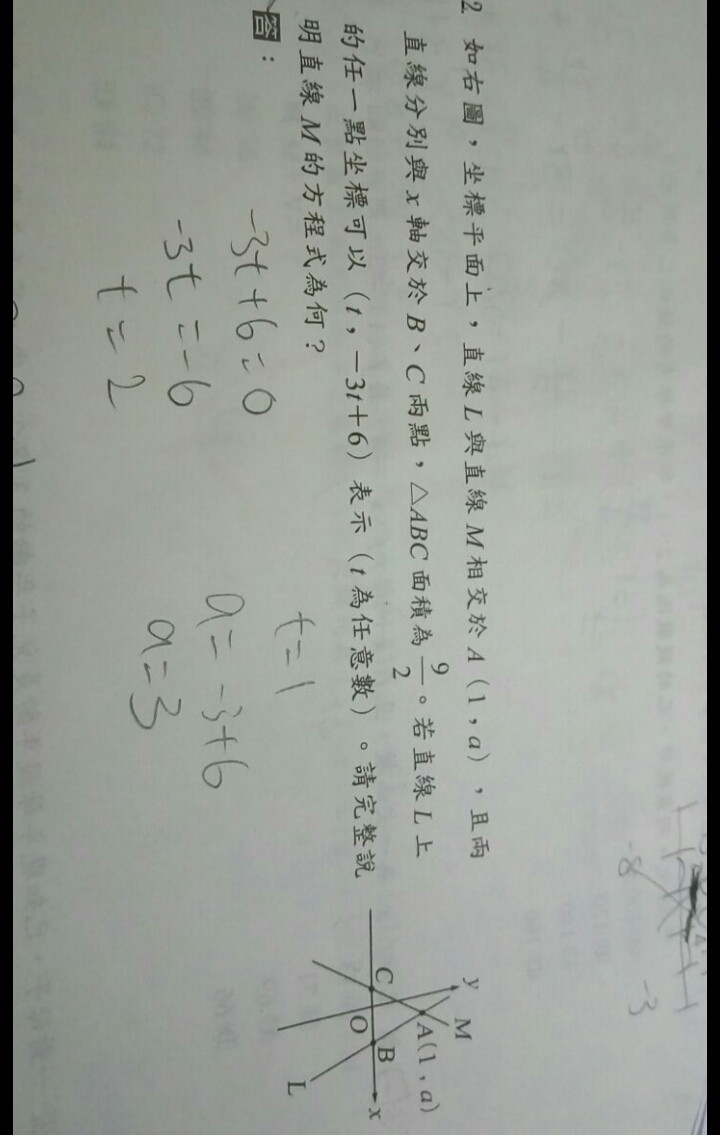 2 如右圖,坐標平面上,直線L與直線M相交於A(1,a),且兩
直線分別與x軸交於B、C兩點,△ABC面積為9/2。若直線L上
的任一點坐標可以(t,-3t+6)表示(t為任意數)。請完整說
明直線M的方程式為何?
答:
-3t+6=0
-3t=-6
t=2
t=1
a=-3+6
a=3
y
M
A(1,a)
C
O
B
x
L
-8
-3